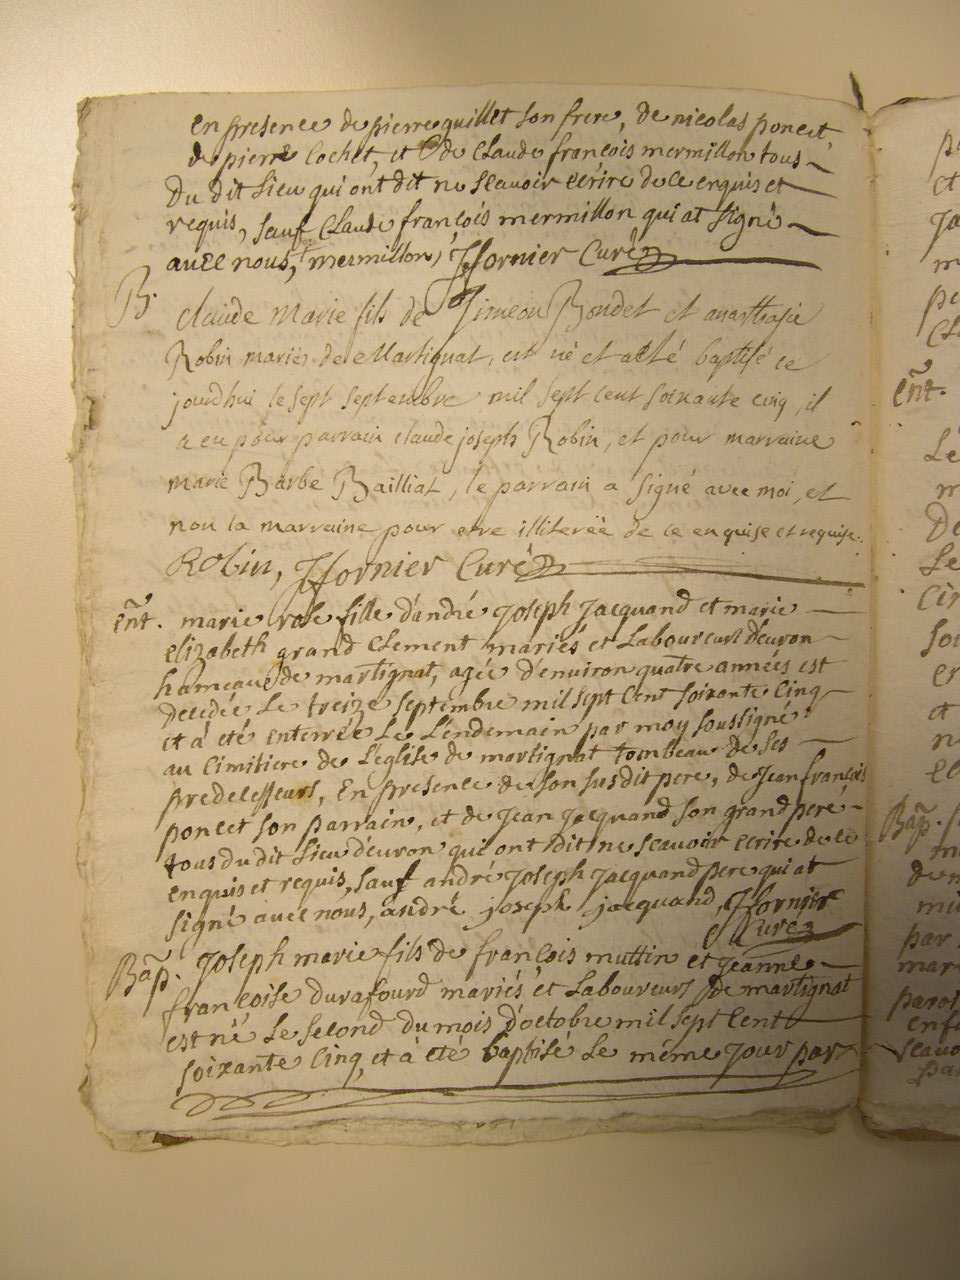 en presence de pierre quillet son frere, de nicolas poncet,
de pierre Cochet, et de Claude françois mermillon tous
du dit lieu qui ont dit ne scavoir ecrire de ce enquis et
requis, sauf Claude françois mermillon qui at signé
avec nous, mermillon, ffornier Curé
B. claude Marie fils de Simeon Bondet et anasthasie
Robin mariés de Martignat, est né et a eté baptisé ce
jourdhui le sept septembre mil sept cent soixante cinq, il
a eu pour parrain claude joseph Robin, et pour marraine
marie Barbe Bailliat, le parrain a signé avec moi, et
non la marraine pour etre illiterée de ce enquise et requise.
Robin, ffornier Curé
ent. marie rose fille d'andré Joseph Jacquand et marie
elizabeth grand Clement mariés et Laboureurs d'evron
hameau de martignat, agée d'environ quatre années est
decedée Le treize septembre mil sept Cent soixante Cinq
et à eté enterrée Le Lendemain par moy soussigné
au Cimitiere de L'église de martignat tombeau de ses
predecesseurs, En presence de son susdit pere, de Jean françois
poncet son parrain, et de Jean Jacquand son grand pere
tous du dit Lieu d'evron qui ont dit ne scavoir ecrire de ce
enquis et requis, sauf andré Joseph Jacquand pere qui at
signé avec nous, andré joseph jacquand, ffornier
Curé
Bap. Joseph marie fils de françois muttin et Jeanne
françoise durafourd mariés et Laboureurs de martignat
est né Le second du mois d'octobre mil sept Cent
soixante Cinq, et à eté baptisé Le même Jour par
ent.
Bap.